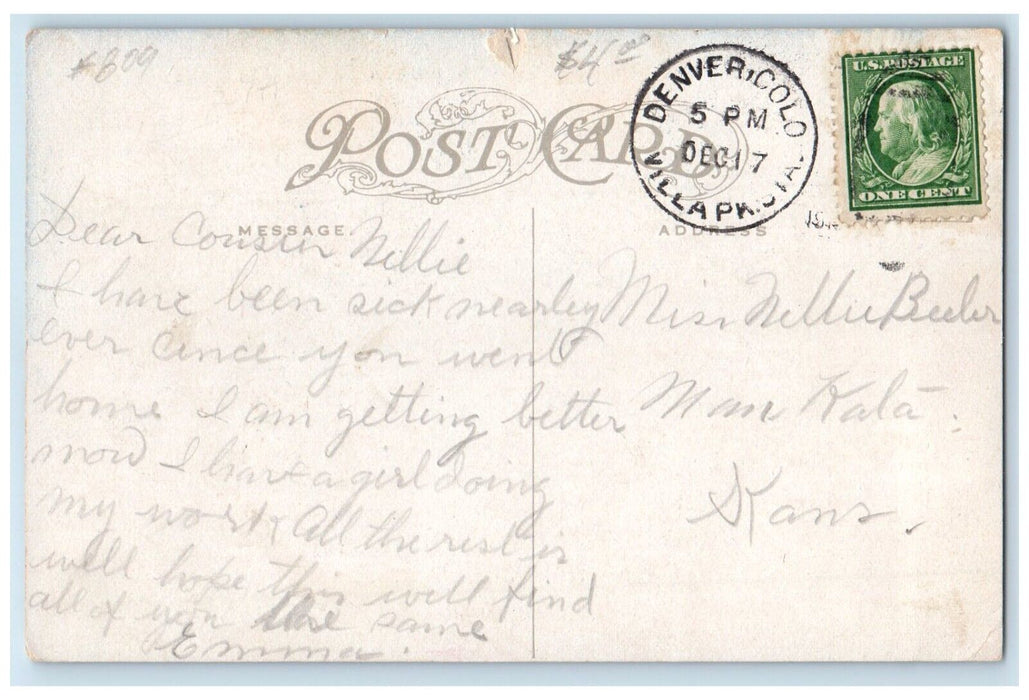 $6.09
$4.00
POST CARD
DENVER, COLO.
5 PM
DEC 17
VILLA PK. STA.
U.S. POSTAGE
ONE CENT
MESSAGE
ADDRESS
Dear Cousin Nellie
I have been sick nearley
ever cince you went
home I am getting better
now I have a girl doing
my work all the rest is
well hope this will find
all of you the same
Emma.
Miss Nellie Beeler
Kans.